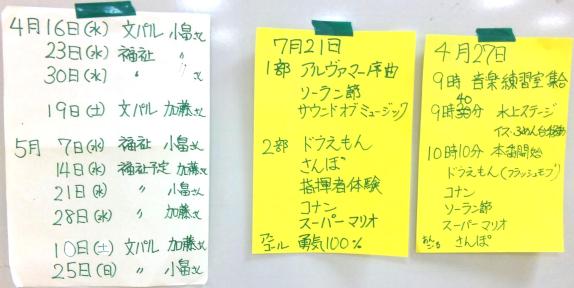 4月16日(水) 文パル 小畠さん
23日(水) 福祉 〃
30日(水) 〃 〃さん
19日(土) 文パル 加藤さん
5月 7日(水) 福祉 小畠さん
14日(水) 福祉予定 加藤さん
21日(水) 〃 小畠さん
28日(水) 〃 加藤さん
10日(土) 文パル 加藤さん
25日(日) 〃 小畠さん
7月21日
1部 アルヴァマー序曲
ソーラン節
サウンドオブミュージック
2部 ドラえもん
さんぽ
指揮者体験
コナン
スーパーマリオ
アンコール 勇気100%
4月27日
9時 音楽練習室集合
9時40分 水上ステージ
イス・ふめん台移動
10時10分 本番開始
ドラえもん(フラッシュモブ)
コナン
ソーラン節
スーパーマリオ
あんこーる さんぽ